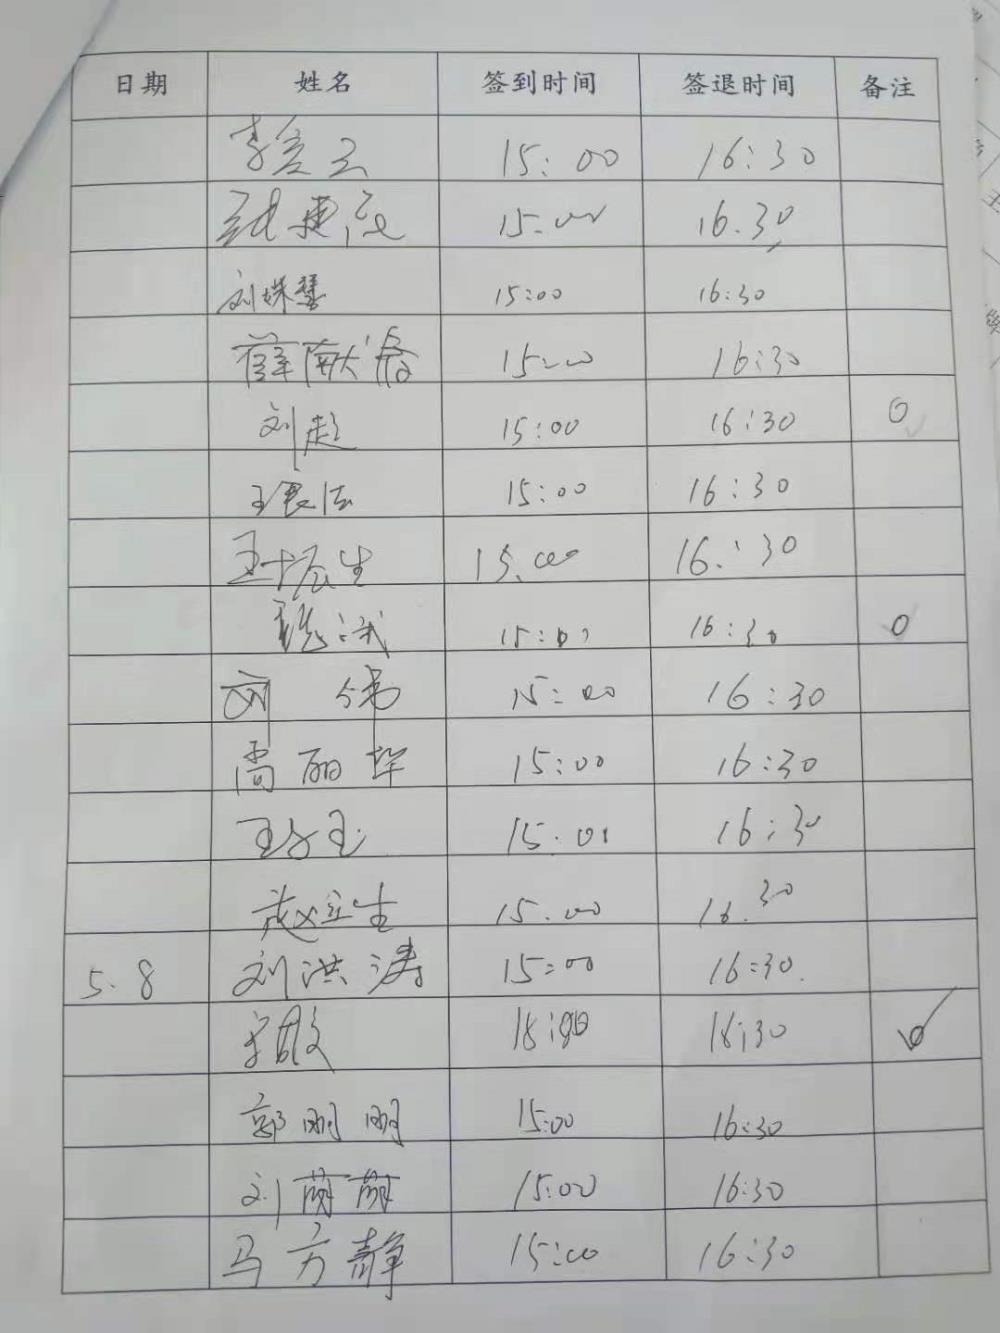 日期 姓名 签到时间 签退时间 备注
李 云 15:00 16:30
张 15:00 16.30
刘姝慧 15:00 16:30
薛献 15:00 16:30
刘超 15:00 16:30 0
王良法 15:00 16:30
王振生 15.00 16:30
15:01 16:30 0
刘伟 15:00 16:30
高丽娟 15:00 16:30
王 玉 15:01 16:30
赵立生 15.00 16.30
5.8 刘洪涛 15:00 16:30.
18:00 18:30 ✓
郭明明 15:00 16:30
刘萌萌 15:00 16:30
马方静 15:00 16:30